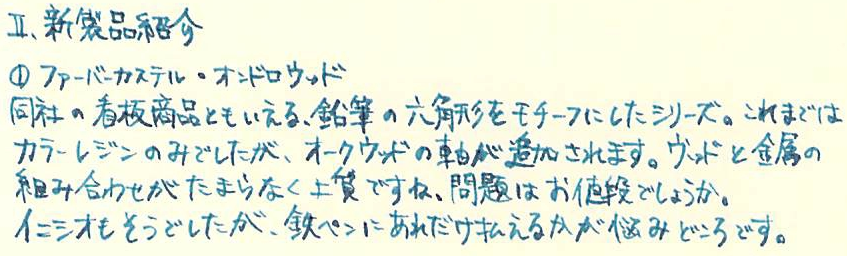 Ⅱ、新製品紹介
① ファーバーカステル・オンドロウッド
同社の看板商品ともいえる、鉛筆の六角形をモチーフにしたシリーズ。これまでは
カラーレジンのみでしたが、オークウッドの軸が追加されます。ウッドと金属の
組み合わせがたまらなく上質ですね、問題はお値段でしょうか。
イニシオもそうでしたが、鉄ペンにあれだけ払えるかが悩みどころです。